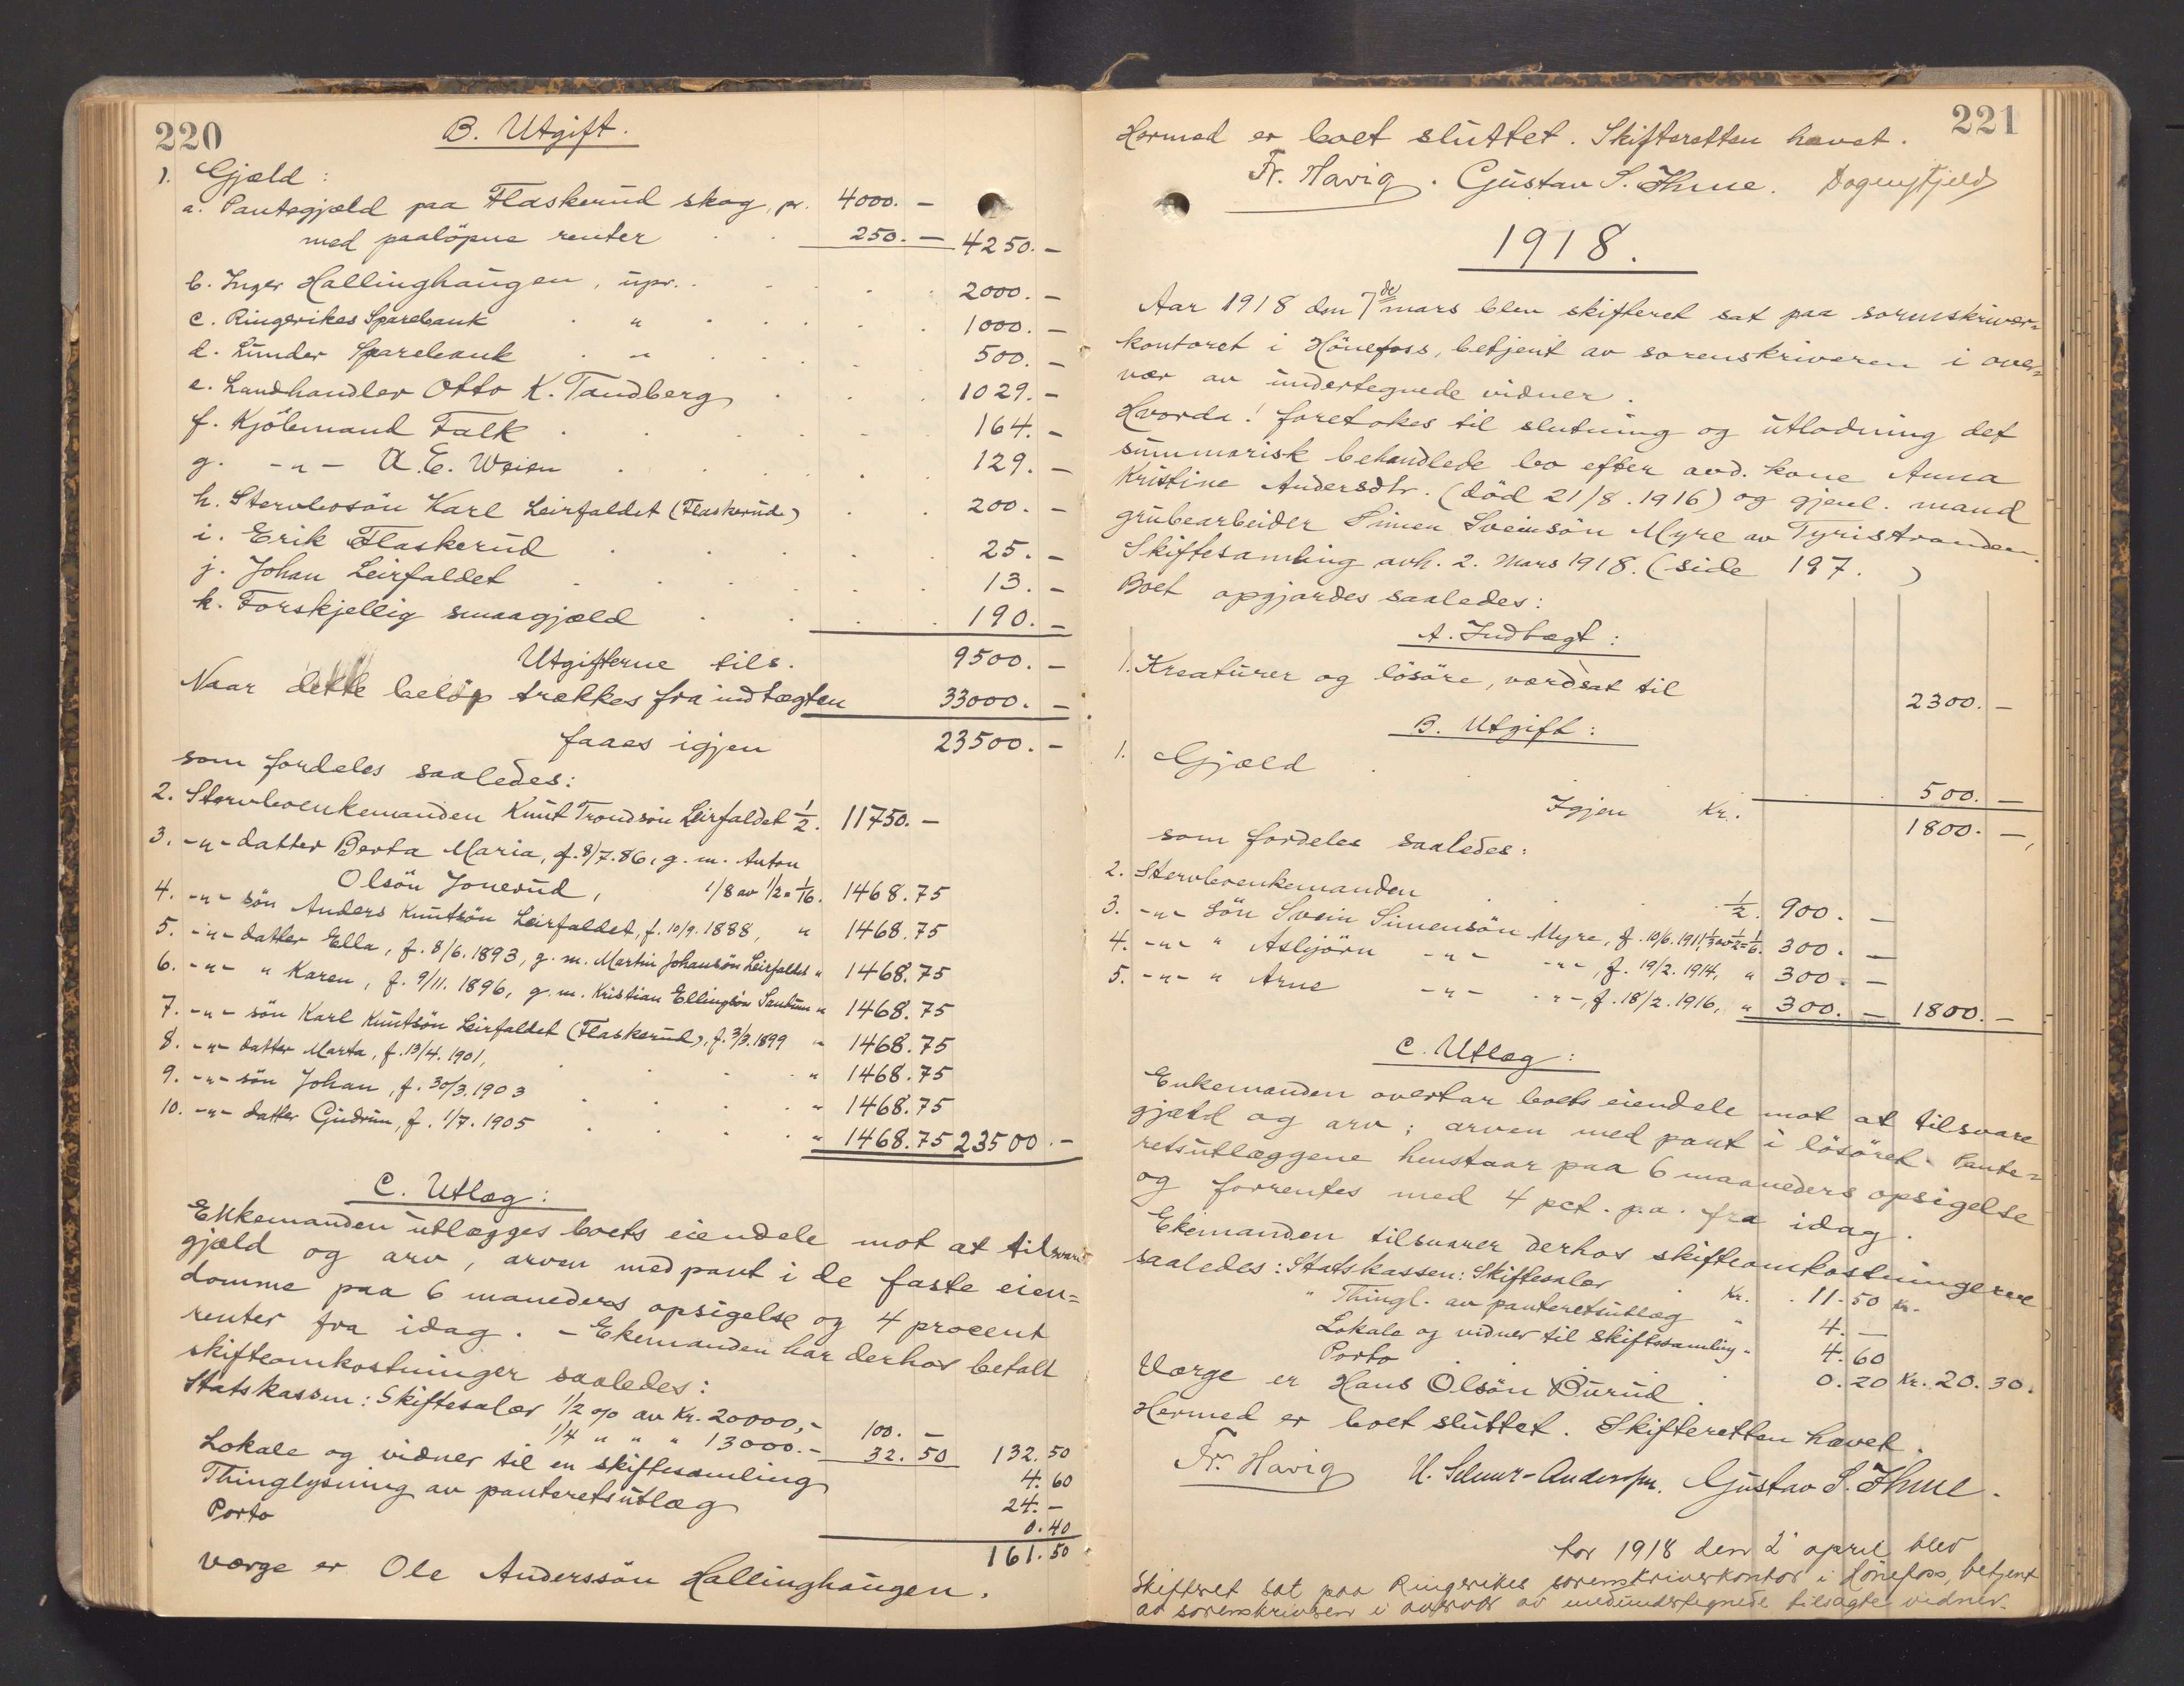 220
B. Utgift.
1. Gjæld:
a. Pantegjæld paa Flaskerud skog, pr. 4000. -
med paalöpne renter 250. - 4250. -
b. Inger Hallinghaugen, upr. 2000. -
c. Ringerikes Sparebank " 1000. -
d. Lunder Sparebank " 500. -
e. Landhandler Otto K. Tandberg 1029. -
f. Kjöbmand Falk 164. -
g. -"- A. E. Weien 129. -
h. Stervbosön Karl Leirfaldet (Flaskerud) 200. -
i. Erik Flaskerud 25. -
j. Johan Leirfaldet 13. -
k. Forskjellig smaagjæld 190. -
Utgifterne tils. 9500. -
Naar dette belöp trækkes fra indtægten 33000. -
faaes igjen 23500. -
som fordeles saaledes:
2. Stervboenkemanden Knut Trondsön Leirfaldet 1/2. 11750. -
3. -"- datter Berta Maria, f. 8/7.86, g. m. Anton
Olsön Jonerud, 1/8 av 1/2 = 1/16. 1468.75
4. -"- sön Anders Knutsön Leirfaldet, f. 10/9. 1888, " 1468.75
5. -"- datter Ella, f. 8/6. 1893, g. m. Martin Johansön Leirfaldet " 1468.75
6. -"- " Karen, f. 9/11. 1896, g. m. Kristian Ellingsön " 1468.75
7. -"- sön Karl Knutsön Leirfaldet (Flaskerud), f. 3/3. 1899 " 1468.75
8. -"- datter Marta, f. 13/4. 1901, " 1468.75
9. -"- sön Johan, f. 30/3. 1903 " 1468.75
10. -"- datter Gudrun, f. 1/7. 1905 " 1468.75 23500. -
C. Utlæg:
Ekkemanden utlægges boets eiendele mot at tilsvare
gjæld og arv, arven med pant i de faste eien=
domme paa 6 maneders opsigelse og 4 procent
renter fra idag. - Ekemanden har derhos betalt
skifteomkostninger saaledes:
Statskassen: Skiftesalær 1/2 % av Kr. 20000,- 100. -
1/4 " " " 13000. - 32.50 132.50
Lokale og vidner til en skiftesamling 4.60
Thinglysning av panteretsutlæg 24. -
Porto 0.40
161.50
Værge er Ole Anderssön Hallinghaugen.
221
Hermed er boet sluttet. Skifteretten hævet.
Fr. Havig. Gustav S. Thue.
1918.
Aar 1918 den 7de mars blev skifteret sat paa sorenskriver=
kontoret i Hönefoss, betjent av sorenskriveren i over=
vær av undertegnede vidner.
Hvorda! foretokes til slutning og utlodning det
summarisk behandlede bo efter avd. kone Anna
Kristine Andersdtr. (död 21/8. 1916) og gjenl. mand
grubearbeider Simen Sveinsön Myre av Tyristranden.
Skiftesamling avh. 2. Mars 1918. (side 197. )
Boet opgjordes saaledes:
A. Indtægt:
1. Kreaturer og lösöre, værdsat til 2300. -
B. Utgift:
1. Gjæld 500. -
Igjen Kr. 1800. -
som fordeles saaledes:
2. Stervboenkemanden 1/2. 900. -
3. -"- sön Svein Simensön Myre, f. 10/6. 1911, 1/3 av 1/2 = 1/6. 300. -
4. -"- " Asbjörn -"- -"-, f. 19/2. 1914, " 300. -
5. -"- " Arne -"- -"-, f. 18/2. 1916, " 300. - 1800. -
C. Utlæg:
Enkemanden overtar boets eiendele mot at tilsvare
gjæld og arv; arven med pant i lösöret. Pante=
retsutlæggene henstaar paa 6 maaneders opsigelse
og forrentes med 4 pct. p.a. fra idag.
Ekemanden tilsvarer derhos skifteomkostningerne
saaledes: Statskassen: Skiftesalær Kr. 11.50 Kr.
" Thingl. av panteretsutlæg " 4. -
Lokale og vidner til skiftesamling " 4.60
Porto 0.20 Kr. 20.30.
Værge er Hans Olsön Burud.
Hermed er boet sluttet. Skifteretten hævet.
Fr. Havig Gustav S. Thue.
Aar 1918 den 2. april blev
Skifteret sat paa Ringerikes sorenskriverkontor i Hönefoss, betjent
av sorenskriveren i overvær av medundertegnede tilsagte vidner.